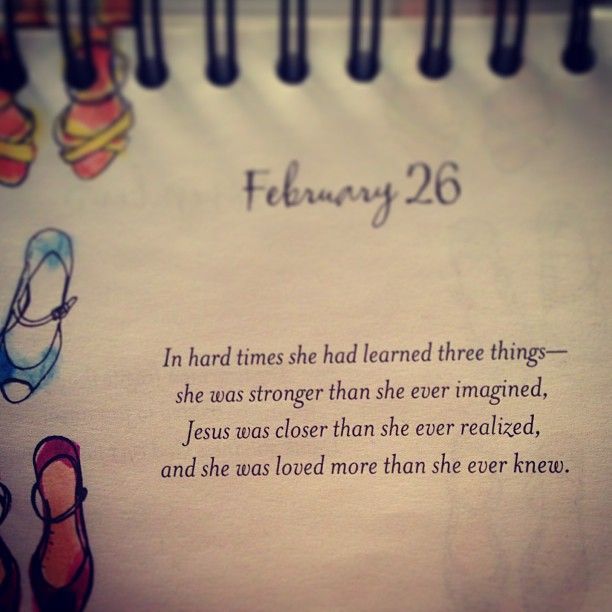 February 26
In hard times she had learned three things—
she was stronger than she ever imagined,
Jesus was closer than she ever realized,
and she was loved more than she ever knew.